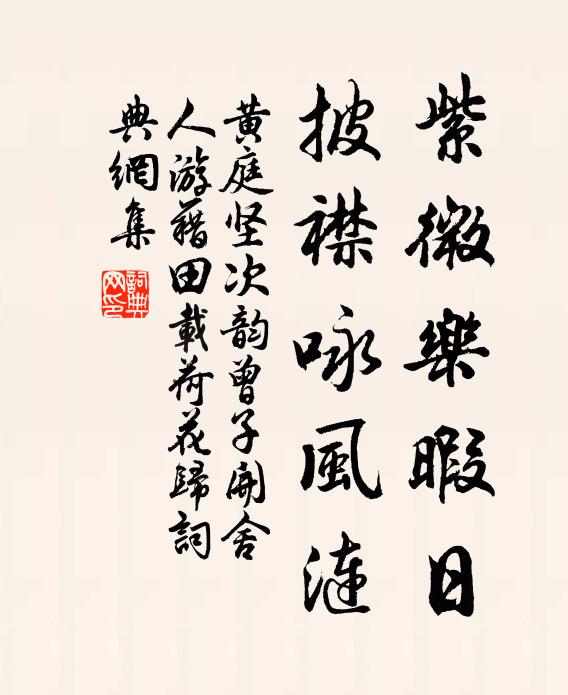 紫微樂暇日
披襟咏風漣
黃庭坚次韵曾子開舍
人游藉田載荷花歸詞
典網集
詞典
网印